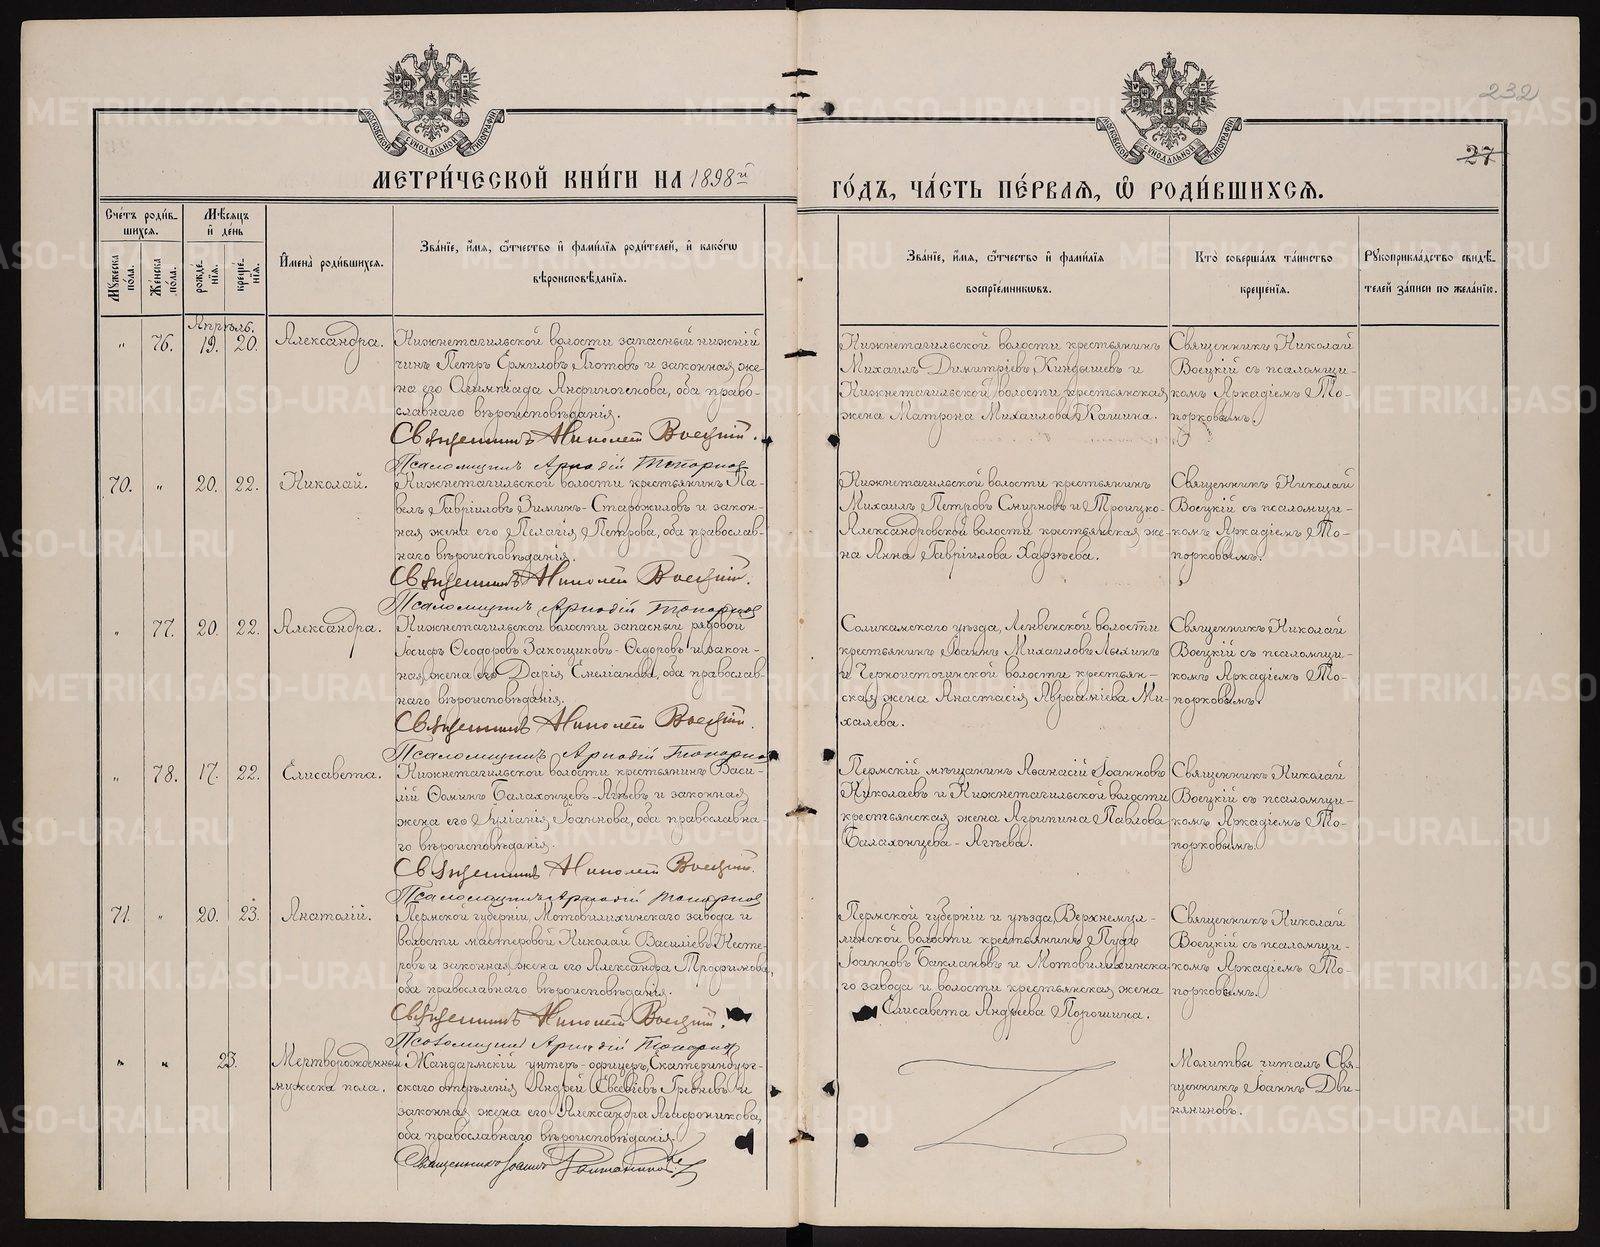 232
27
МОСКОВСКОЙ СѴНОДАЛЬНОЙ ТИПОГРАФІИ
МОСКОВСКОЙ СѴНОДАЛЬНОЙ ТИПОГРАФІИ
МЕТРИ́ЧЕСКОЙ КНИ́ГИ НА 1898й
ГО́ДЪ, ЧА́СТЬ ПЕ́РВАЯ, Ѽ РОДИ́ВШИХСЯ.
Сче́тъ роди́в-
шихся.
Мѣ́сяцъ
и҆ де́нь
Мꙋ́жеска по́ла.
Же́нска по́ла.
рожде́нїя.
креще́нїя.
И҆мена̀ роди́вшихся.
Зва́нїе, и҆́мя, ѻ҆́тчество и҆ фами́лїя роди́телей, и҆ како́гѡ
вѣроисповѣ́данїя.
Зва́нїе, и҆́мя, ѻ҆́тчество и҆ фами́лїя
воспрїе́мникѡвъ.
Кто̀ соверша́лъ та́инство
креще́нїя.
Рꙋкоприкла́дство свидѣ́-
телей за́писи по жела́нїю.
Апрѣль.
" 76. 19. 20. Александра.
Нижнетагильской волости запасный нижній
чинъ Петръ Ермиловъ Глотовъ и законная же
на его Олимпіада Анфиногенова, оба право-
славнаго вѣроисповѣданія.
Священникъ Николай Воецкій.
Псаломщикъ Аркадій Топорков
Нижнетагильской волости крестьянинъ
Михаилъ Димитріевъ Киндышевъ и
Нижнетагильской волости крестьянская
жена Матрона Михаилова Кашина.
Священникъ Николай
Воецкій съ псаломщи-
комъ Аркадіемъ То-
порковымъ.
70. " 20. 22. Николай.
Нижнетагильской волости крестьянинъ Па-
велъ Гавріиловъ Зиминъ-Старожиловъ и закон-
ная жена его Пелагія Петрова, оба православ-
наго вѣроисповѣданія.
Священникъ Николай Воецкій.
Псаломщикъ Аркадій Топорков
Нижнетагильской волости крестьянинъ
Михаилъ Петровъ Смирновъ и Троицко-
Александровской волости крестьянская же-
на Анна Гавріилова Харзѣева.
Священникъ Николай
Воецкій съ псаломщи-
комъ Аркадіемъ То-
порковымъ.
" 77. 20. 22. Александра.
Нижнетагильской волости запасный рядовой
Іосифъ Ѳеодоровъ Закощиковъ-Ѳедоровъ и закон-
ная жена его Дарія Емеліанова, оба православ-
наго вѣроисповѣданія.
Священникъ Николай Воецкій.
Псаломщикъ Аркадій Топорков
Соликамскаго уѣзда, Ленвенской волости
крестьянинъ Іоаннъ Михаиловъ Лыхинъ
и Черноистоцкой волости крестьян-
ская жена Анастасія Авраамієва Ми-
халева.
Священникъ Николай
Воецкій съ псаломщи-
комъ Аркадіемъ То-
порковымъ.
" 78. 17. 22. Елисавета.
Нижнетагильской волости крестьянинъ Васи-
лій Ѳоминъ Балахонцевъ-Агѣевъ и законная
жена его Іуліанія Іоаннова, оба православна-
го вѣроисповѣданія.
Священникъ Николай Воецкій.
Псаломщикъ Аркадій Топорков
Пермскій мѣщанинъ Аѳанасій Іоанновъ
Николаевъ и Нижнетагильской волости
крестьянская жена Агрипина Павлова
Балахонцева-Агѣева.
Священникъ Николай
Воецкій съ псаломщи-
комъ Аркадіемъ То-
порковымъ.
71. " 20. 23. Анатолій.
Пермской губерніи, Мотовилихинскаго завода и
волости мастеровой Николай Василіевъ Несте-
ровъ и законная жена его Александра Трофимова,
оба православнаго вѣроисповѣданія.
Священникъ Николай Воецкій.
Псаломщикъ Аркадій Топорков
Пермской губерніи и уѣзда, Верхнемул-
линской волости крестьянинъ Пудъ
Іоанновъ Баклановъ и Мотовилихинска
го завода и волости крестьянская жена
Елисавета Андреева Порошина.
Священникъ Николай
Воецкій съ псаломщи-
комъ Аркадіемъ То-
порковымъ.
" " 23. Мертворожденный
мужска пола.
Жандармскій унтеръ-офицеръ, Екатеринбург-
скаго отдѣленія Андрей Евсѣевъ Гребневъ и
законная жена его Александра Агафоникова,
оба православнаго вѣроисповѣданія.
Священникъ Іоаннъ
Молитвы читалъ Свя-
щенникъ Іоаннъ Дви-
няниновъ.
METRIKI.GASO-URAL.RU